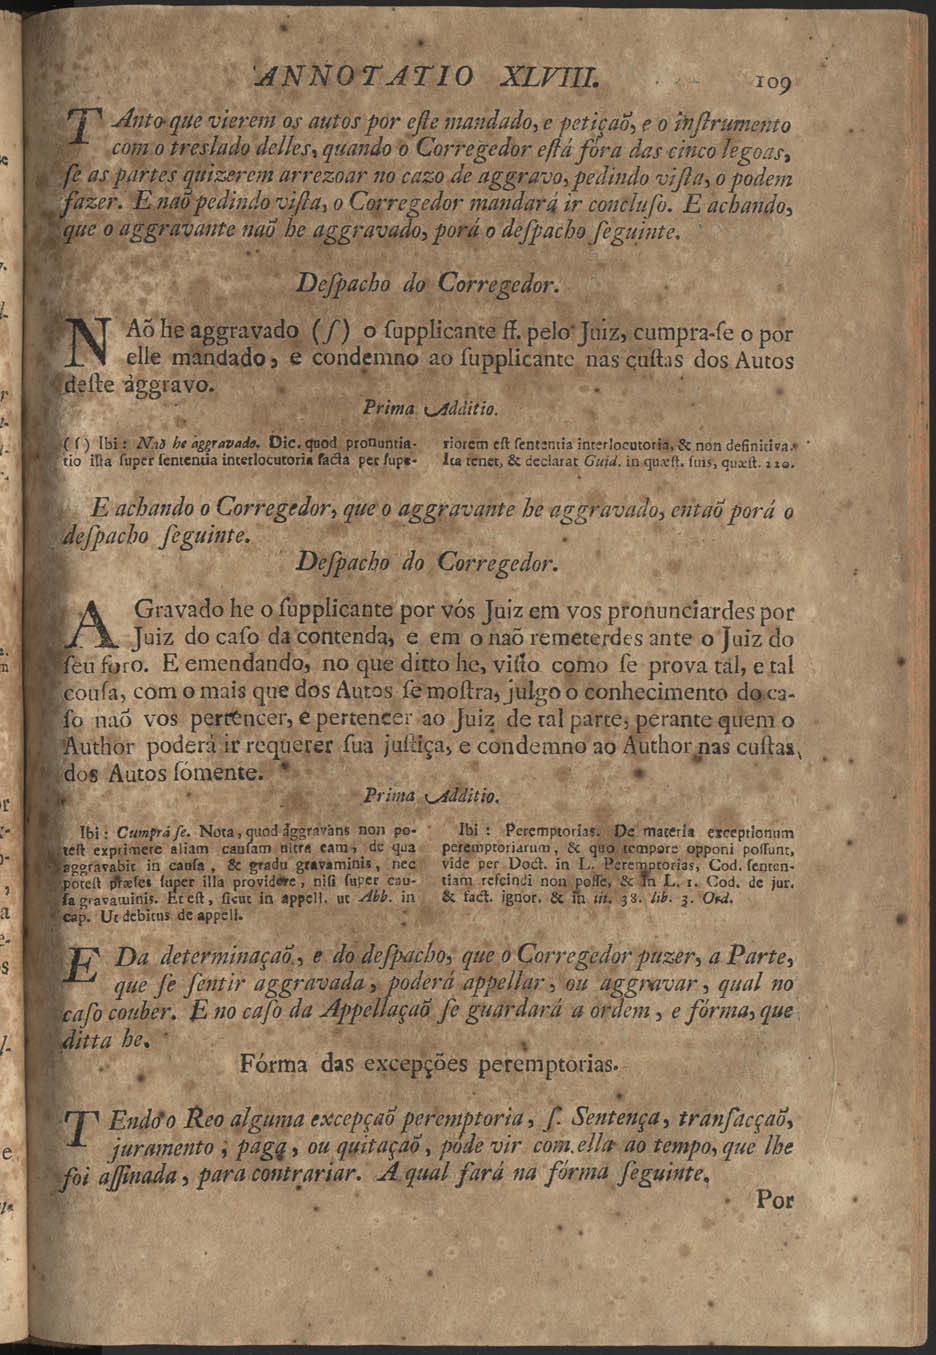 ANNOTATIO XLVIII. 109
TAnto que vierem os autos por eſte mandado, e petiçaõ, e o inſtrumento
com o treslado delles, quando o Corregedor eſtá fóra das cinco legoas,
ſe as partes quizerem arrezoar no cazo de aggravo, pedindo viſta, o podem
fazer. E naõ pedindo viſta, o Corregedor mandará ir concluſo. E achando,
que o aggravante naõ he aggravado, porá o deſpacho ſeguinte.
Deſpacho do Corregedor.
NAõ he aggravado (ſ) o ſupplicante ſſ. pelo Juiz, cumpra-ſe o por
elle mandado, e condemno ao ſupplicante nas cuſtas dos Autos
deſte aggravo.
Prima Additio.
(ſ) Ibi: Naõ he aggravado. Dic. quod pronuntia-
tio iſta ſuper ſententia interlocutoria facta per ſupe-
riorem eſt ſententia interlocutoria, & non definitiva.
Ita tenet, & declarat Guid. in quæſt. ſuis, quæſt. 220.
E achando o Corregedor, que o aggravante he aggravado, entaõ porá o
deſpacho ſeguinte.
Deſpacho do Corregedor.
AGravado he o ſupplicante por vós Juiz em vos pronunciardes por
Juiz do caſo da contenda, e em o naõ remeterdes ante o Juiz do
ſeu foro. E emendando, no que ditto he, viſto como ſe prova tal, e tal
couſa, com o mais que dos Autos ſe moſtra, julgo o conhecimento do ca-
ſo naõ vos pertencer, e pertencer ao Juiz de tal parte, perante quem o
Author poderá ir requerer ſua juſtiça, e condemno ao Author nas cuſtas
dos Autos ſómente.
Prima Additio.
Ibi: Cumpra ſe. Nota, quod aggravans non po-
teſt exprimere aliam cauſam ultra eam, de qua
aggravabit in cauſa, & gradu gravaminis, nec
poteſt præſes ſuper illa providere, niſi ſuper cau-
ſa gravaminis. Et eſt, ſicut in appell. ut Abb. in
cap. Ut debitus de appell.
Ibi: Peremptorias. De materia exceptionum
peremptoriarum, & quo tempore opponi poſſunt,
vide per Doct. in L. Peremptorias, Cod. ſenten-
tiam reſcindi non poſſe, & in L. 1. Cod. de jur.
& fact. ignor. & in tit. 38. lib. 3. Ord.
EDa determinaçaõ, e do deſpacho, que o Corregedor puzer, a Parte,
que ſe ſentir aggravada, poderá appellar, ou aggravar, qual no
caſo couber. E no caſo da Appellaçaõ ſe guardará a ordem, e fórma, que
ditta he.
Fórma das excepções peremptorias.
TEndo o Reo alguma excepçaõ peremptoria, ſ. Sentença, tranſacçaõ,
juramento, paga, ou quitaçaõ, póde vir com ella ao tempo, que lhe
foi aſſinada, para contrariar. A qual fará na fórma ſeguinte.
Por